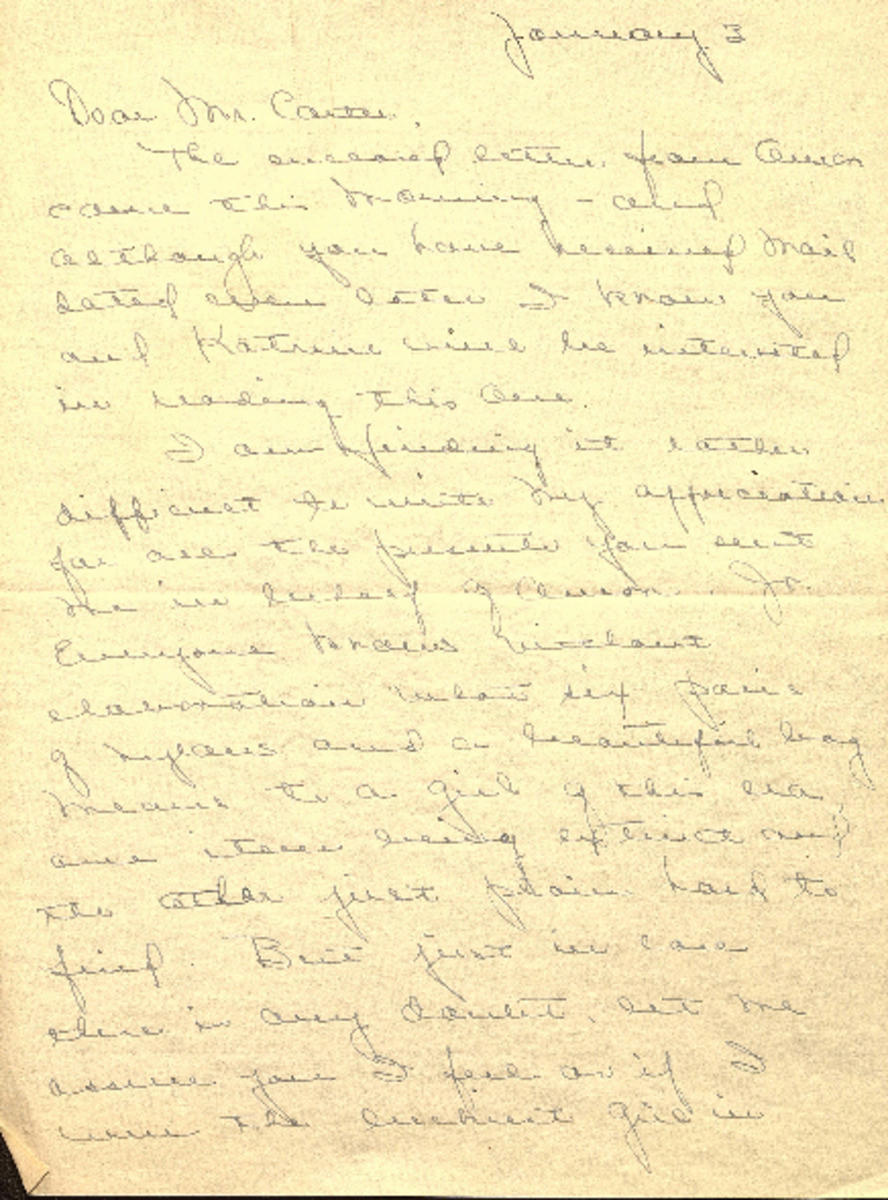 January 3
Dear Mr. Carter,
The enclosed letter from Amon
came this morning - and
although you have received mail
dated even later I know you
and Katrine will be interested
in reading this one.
I am finding it rather
difficult to write my appreciation
for all the presents you sent
me in behalf of Amon. Jr.
Everyone knows without
elaboration what six pairs
of nylons and a beautiful bag
means to a girl of this era,
one item being extinct and
the other just plain hard to
find. But just in case
there is any doubt, let me
assure you I feel as if I
were the luckiest girl in